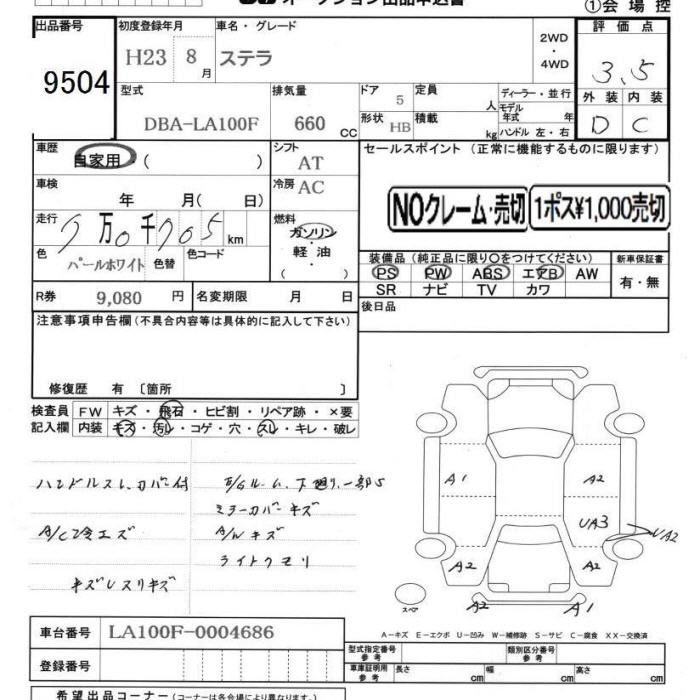 オークション出品申込書
①会場控
出品番号
9504
初度登録年月
H23 8月
車名・グレード
ステラ
2WD
・
4WD
評価点
3.5
外装 内装
D C
型式
DBA-LA100F
排気量
660 CC
ドア 5
形状 HB
定員 人
積載 kg
ディーラー・並行
モデル年式 年
ハンドル 左・右
車歴
自家用 ( )
シフト AT
冷房 AC
車検
年 月( 日)
走行
万0千705km
燃料
ガソリン
軽油
( )
色
パールホワイト
色替
色コード
R券 9,080 円
名変期限 月 日
セールスポイント(正常に機能するものに限ります)
NOクレーム・売切
1ポス¥1,000売切
装備品(純正品に限り〇をつけてください)
PS PW ABS エアB AW
SR ナビ TV カワ
新車保証書
有・無
後日品
注意事項申告欄(不具合内容等は具体的に記入して下さい)
修復歴 有〔箇所 〕
検査員記入欄
FW キズ・飛石・ヒビ割・リペア跡・×要
内装 キズ・汚レ・コゲ・穴・スレ・キレ・破レ
ハンドルスレ、カバー付
E/Gルーム、下廻り、一部S
ミラーカバーキズ
A/C冷エズ
A/Wキズ
ライトクモリ
キズレスリキズ
A1
A2
UA3
UA2
A2
A2
A2
A1
スペア
A-キズ E-エクボ U-凹み W-補修跡 S-サビ C-腐食 XX-交換済
車台番号 LA100F-0004686
登録番号
型式指定番号 参考
類別区分番号 参考
車庫証明用 参考
長さ cm
幅 cm
高さ cm
希望出品コーナー(コーナーは各会場により異なります)